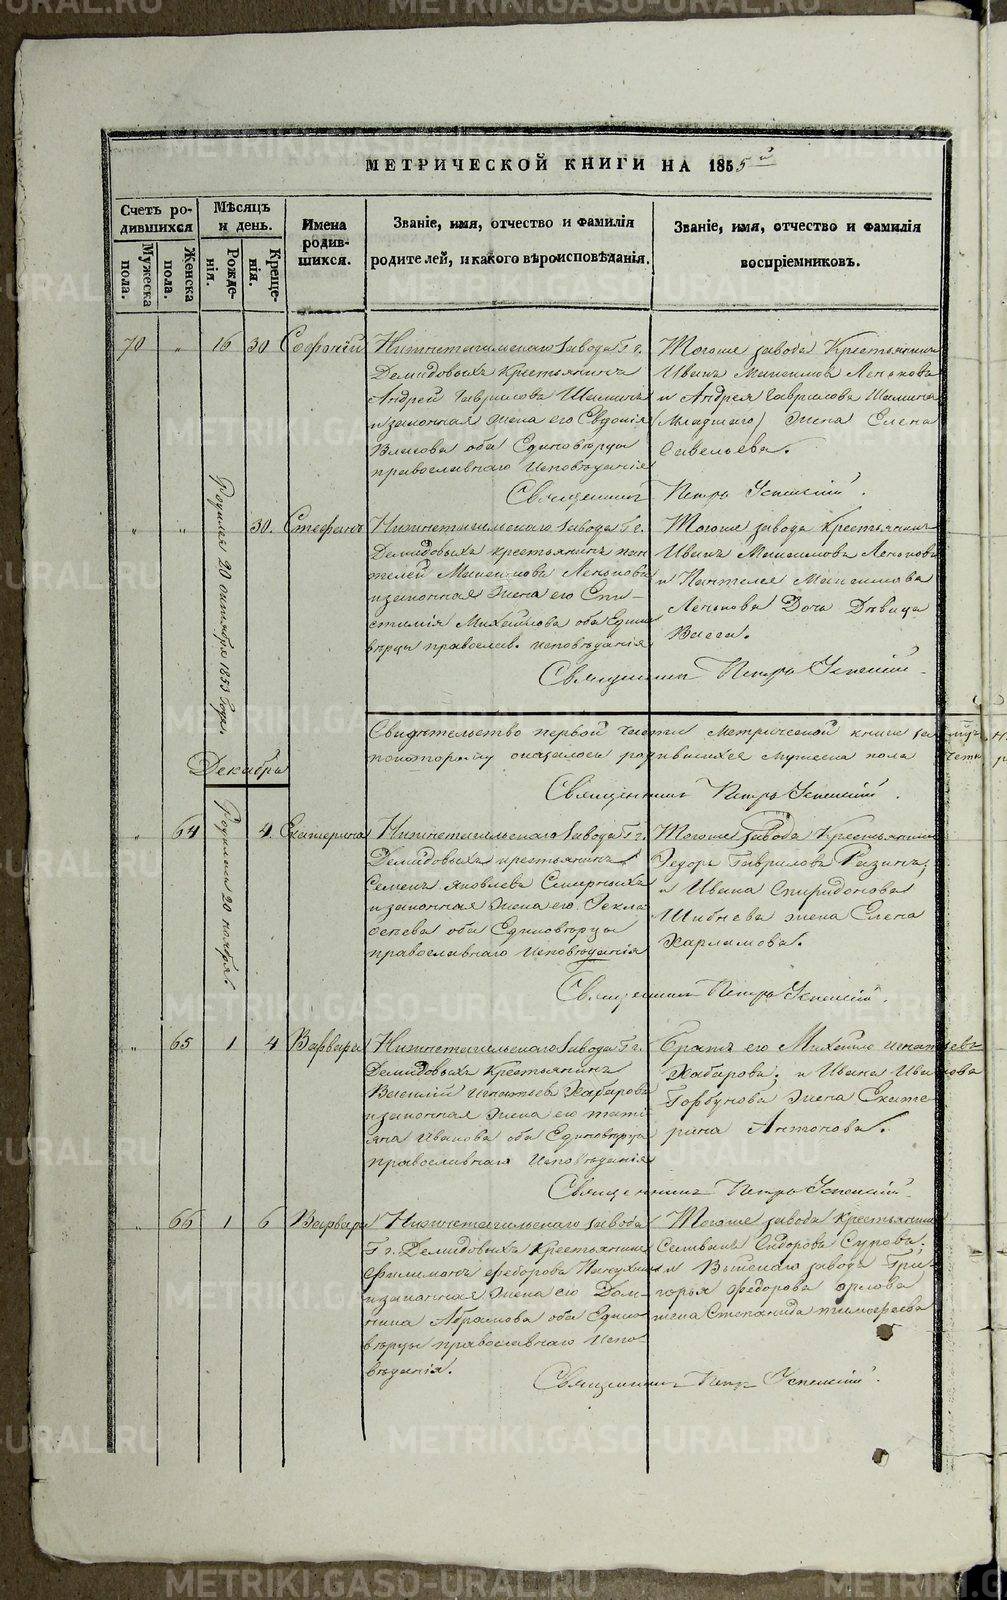 МЕТРИЧЕСКОЙ КНИГИ НА 1855й
Счетъ ро-
дившихся
Мужеска пола.
Женска пола.
Мѣсяцъ
и день.
Рожде-
нія.
Креще-
нія.
Имена
родив-
шихся.
Званіе, имя, отчество и фамилія
родителей, и какого вѣроисповѣданія.
Званіе, имя, отчество и фамилія
воспріемниковъ.
70 " 16 30 Софоній
Нижнетагильскаго завода Гг.
Демидовыхъ крестьянинъ
Андрей Гавриловъ Шаминъ
и законная жена его Евдокія
Власова оба Единовѣрцы
православнаго исповѣданія
Тогоже завода Крестьянинъ
Иванъ Максимовъ Леньковъ
и Андрея Гаврилова Шамина
(младшаго) жена Елена
Савельева.
Священникъ Петръ Успенскій.
" " Родился 20 октября 1853 года. 30. Стефанъ
Нижнетагильскаго завода Гг.
Демидовыхъ крестьянинъ пан
телей Максимовъ Леньковъ
и законная жена его Епи-
стимія Михайлова оба Едино
вѣрцы православ. исповѣданія
Тогоже завода Крестьянинъ
Иванъ Максимовъ Леньковъ
и Пантелея Максимова
Ленькова Дочь Дѣвица
Васса.
Священникъ Петръ Успенскій.
Свидѣтельство первой части метрической книги за
по которому оказалось родившихся мужеска пола
Священникъ Петръ Успенскій.
Декабрь
" 64 Родилась 20 ноября. 4. Екатерина
Нижнетагильскаго завода Гг.
Демидовыхъ крестьянинъ
Семенъ Яковлевъ
и законная жена его Фекла
оба Единовѣрцы
православнаго исповѣданія
Тогоже завода Крестьянинъ
Федоръ Гавриловъ Разинъ,
и Ивана Спиридонова
Шибнева жена Елена
Харламова.
Священникъ Петръ Успенскій.
" 65 1 4 Варвара
Нижнетагильскаго завода Гг.
Демидовыхъ крестьянинъ
Василій Игнатьевъ Хабаровъ
и законная жена его тать
яна Иванова оба Единовѣрцы
православнаго исповѣданія
Братъ его Михайло Игнатьевъ
Хабаровъ; и Ивана Иванова
Горбунова жена Екате
рина Антонова.
Священникъ Петръ Успенскій.
" 66 1 6 Варвара
Нижнетагильскаго завода
Гг. Демидовыхъ крестьянинъ
Филимонъ Федоровъ
и законная жена его Дом-
нина Абрамова оба Едино
вѣрцы православнаго испо
вѣданія.
Тогоже завода крестьянинъ
Селиванъ Сидоровъ Суровъ.
и Выйскаго завода Гри
горья Федорова орлова
жена Степанида тимофеева
Священникъ Петръ Успенскій.
METRIKI.GASO-URAL.RU